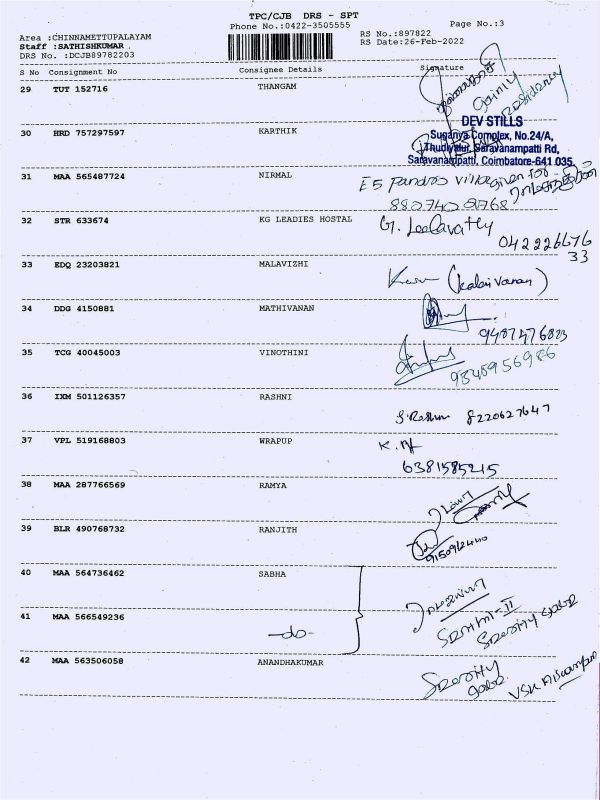 TPC/CJB DRS - SPT
Phone No.:0422-3505555
Page No.:3
Area :CHINNAMETTUPALAYAM
RS No.:897822
Staff :SATHISHKUMAR
RS Date:26-Feb-2022
DRS No. :DCJB89782203
S No Consignment No Consignee Details Signature
29 TUT 152716 THANGAM
Residency
30 HRD 757297597 KARTHIK
DEV STILLS
Suganya Complex, No.24/A,
Thudiyalur Saravanampatti Rd,
Saravanampatti, Coimbatore-641 035
31 MAA 565487724 NIRMAL
E5 Pandros Villa given for
8807408768
32 STR 633674 KG LEADIES HOSTAL
G. Leelavathy
042226676
33
33 EDQ 23203821 MALAVIZHI
(Kalaivanan)
34 DDG 4150881 MATHIVANAN
35 TCG 40045003 VINOTHINI
9345956986
36 IXM 501126357 RASHNI
8220627647
37 VPL 519168803 WRAPUP
6381585215
38 MAA 287766569 RAMYA
39 BLR 490768732 RANJITH
40 MAA 564736462 SABHA
41 MAA 566549236 -do-
42 MAA 563506058 ANANDHAKUMAR